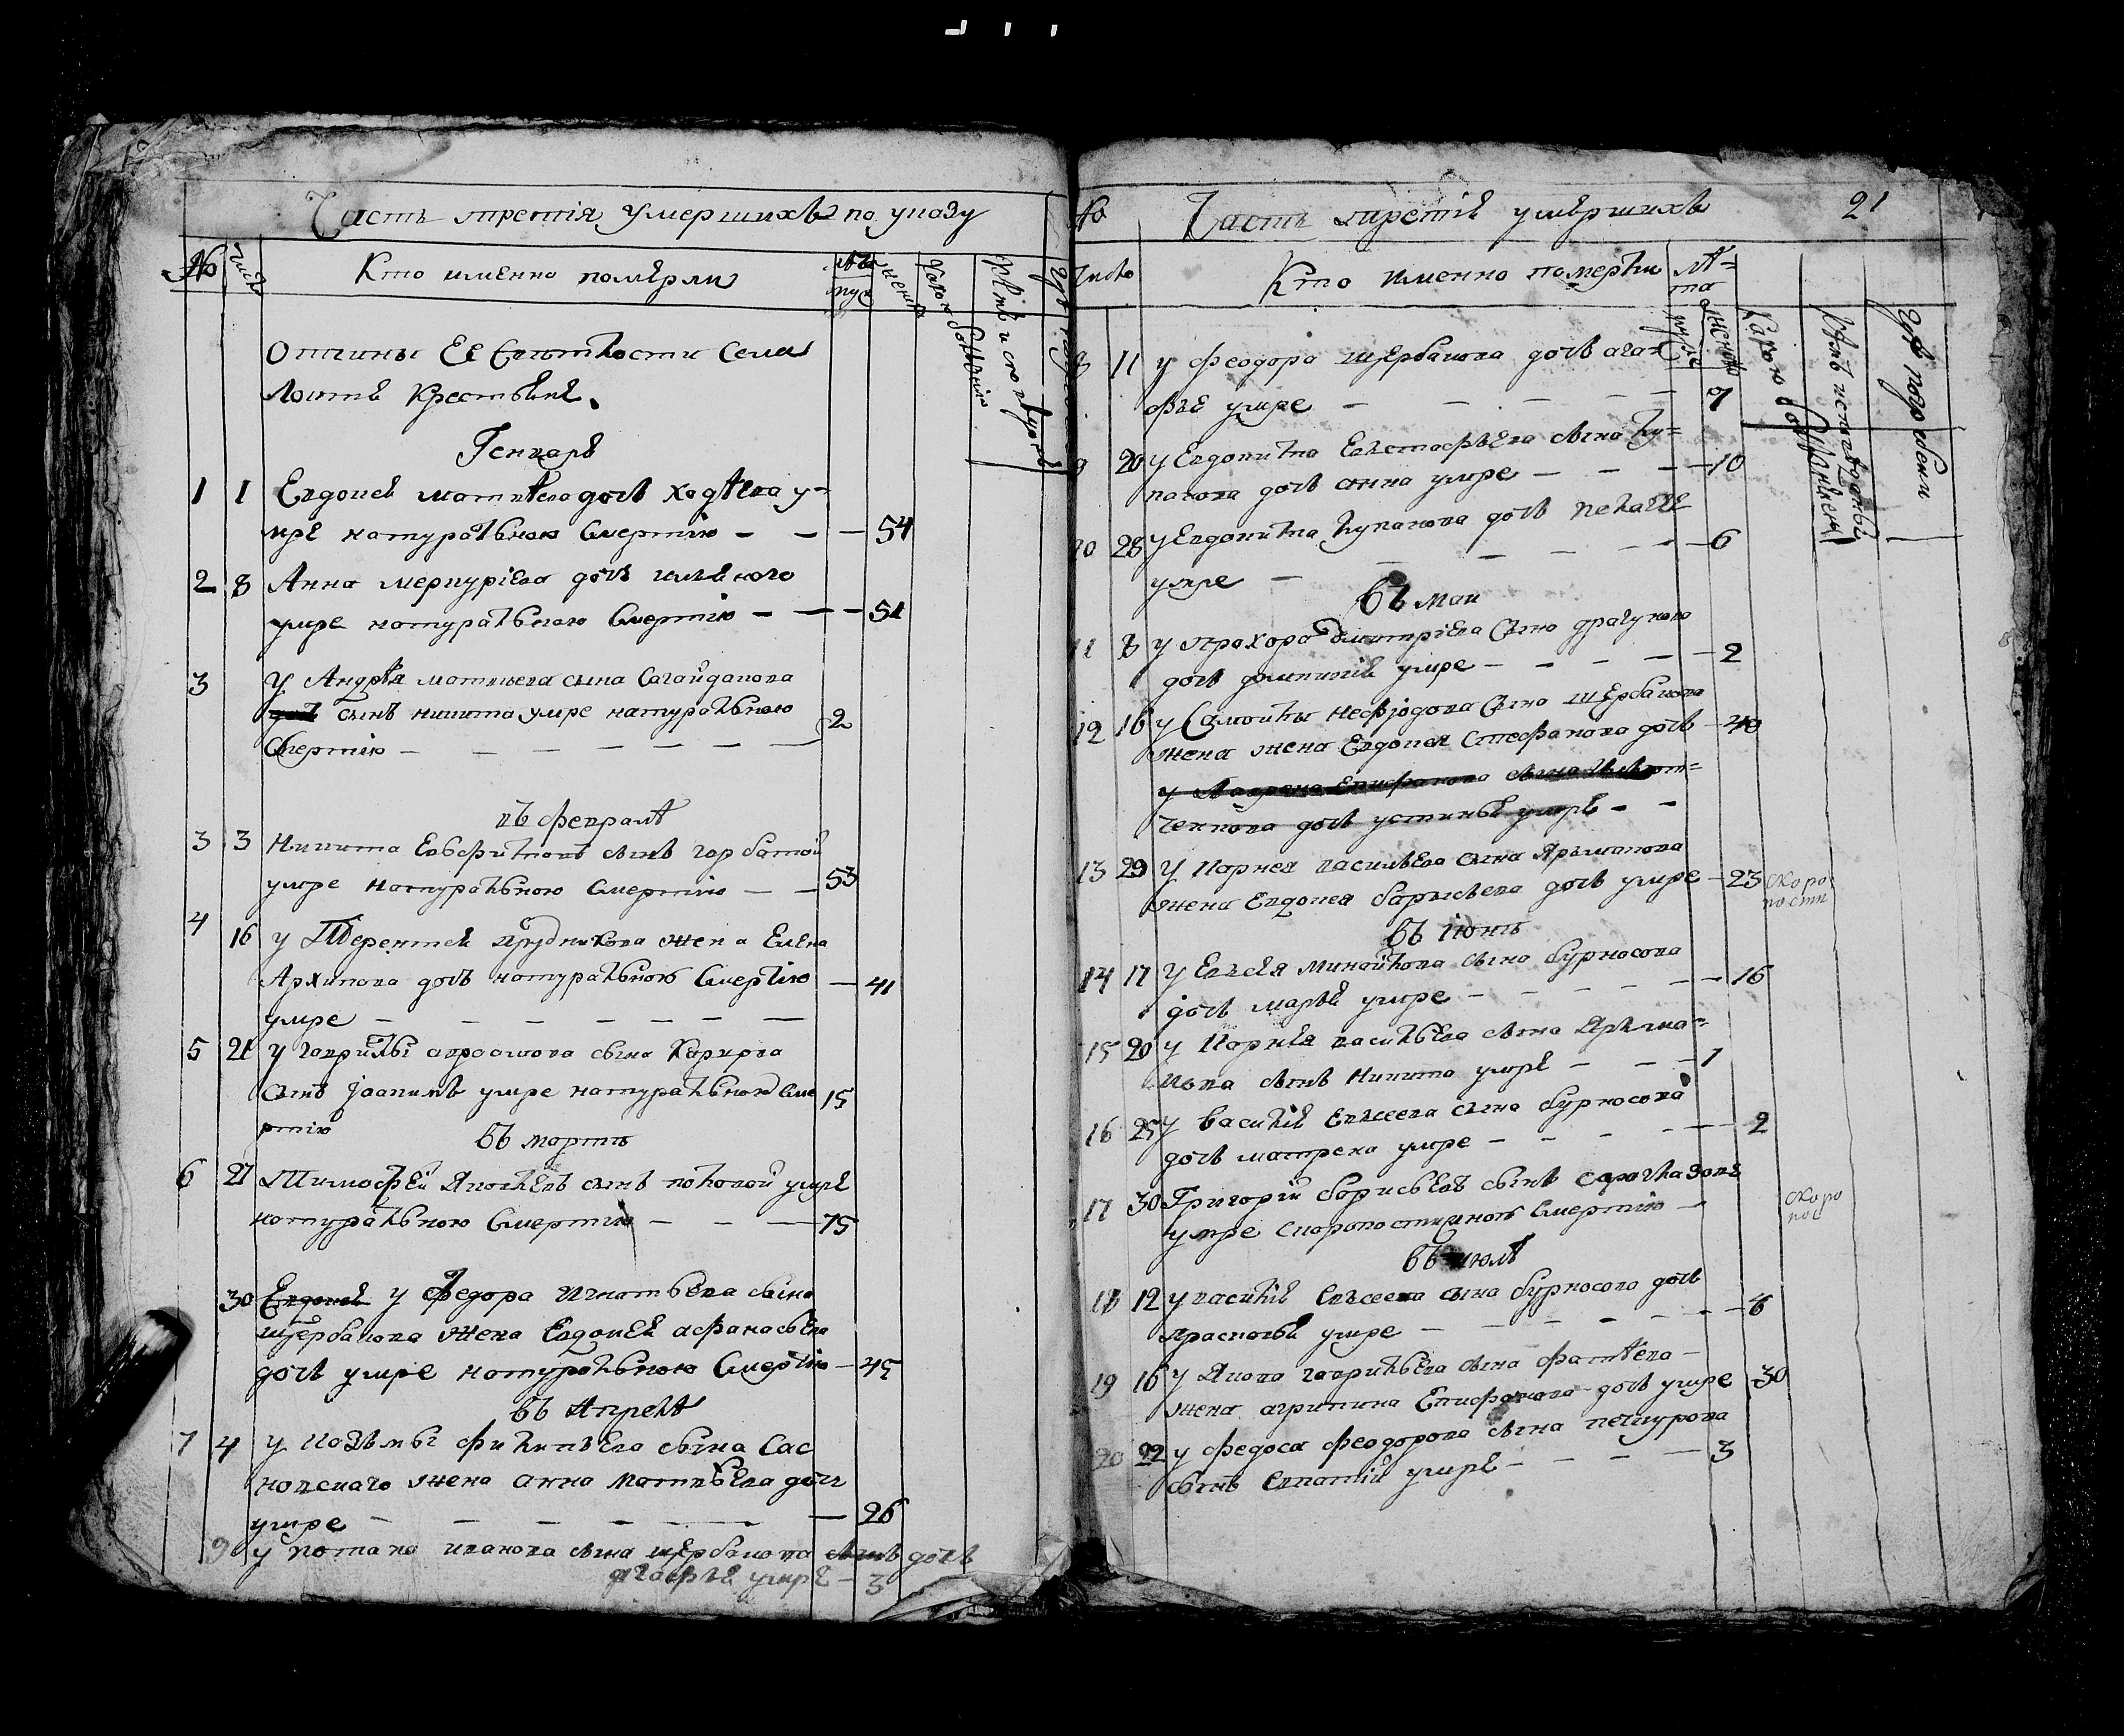 Часть третія умершихъ по указу
№ число Кто именно померли лѣта муж женск Какою болѣзнію Кѣмъ исповѣдун Гдѣ
Отчины Ея Свѣтлости Села
крестьяне.
Генварь
1 1 Евдокея Матвѣева дочь Ходѣева у=
мре натуральною Смертію — — — 54
2 8 Анна меркуріева дочь
умре натуральною Смертію — — — 51
3 У Андрѣя матвѣева сына Сагайдакова
дочь сынъ никита умре натуральною 2
Смертію — — — — — — —
въ февралѣ
3 3 Никита сынъ горбатой
умре натуральною Смертію — — 53
4 16 у Терентея прудникова жена Елена
Архипова дочь натуральною Смертію — 41
умре — — — — — — —
5 21 у гаврилы аврамова сына
Сынъ Іоакимъ умре натуральною Сме 15
ртію
въ мартѣ
6 21 Тимофей Яковлевъ сынъ поповой умре
натуральною Смертію — — — 75
30 Евдокея у Федора Игнатьева сына
щербакова жена Евдокея афанасьева
дочь умре натуральною Смертію — 45
въ Апрелѣ
7 4 у Козьмы филипьева сына Сас
новскаго жена анна матвѣева дочь
умре — — — — — — 26
9 у потапа иванова сына щербакова сынъ дочь
агафья умре — 3
№ Часть третія умершихъ 21
Число Кто именно померли лѣ=
та мужск женск Какою болѣзнію Кѣмъ исповѣдованы Гдѣ погребены
8 11 у феодора щербакова дочь ага=
фья умре — — — — — 7
9 20 у Евдокима Евстафьева сына лу=
дочь анна умре — — — — 10
10 28 у Евдокима дочь пелагея
умре — — — — — 6
въ маи
11 8 у прохора дмитріева Сына драгунова
дочь домникія умре — — — — — 2
12 16 у Самойлы нефіодова Сына щербакова
жена жена Евдокея Стефанова дочь — 40
у Епифанова сына
дочь устинья умре — —
13 29 У Корнея васильева сына Ярмакова
жена Евдокея барисьева дочь умре — 23 скоро
пости
въ Іюнѣ
14 17 У Евсея минайлова сына бурносова
дочь марья умре — — — — — 16
15 20 у Корнея васильева сына Ярма=
кова сынъ Никита умре — — — 1
16 25 у Василія Евсеева сына бурносова
дочь матрена умре — — — — — 2
17 30 Григорій борисьевъ сынъ
умре скоропостижною Смертію — скоро
пос
въ июлѣ
18 12 у василія Евсеева сына бурносова дочь
прасковья умре — — — — — — 6
19 16 у Якова гаврильева сына фатѣева —
жена агрипина Епифанова дочь умре 30
20 22 у федоса феодорова сына печкурова
сынъ умре — — — — — 3